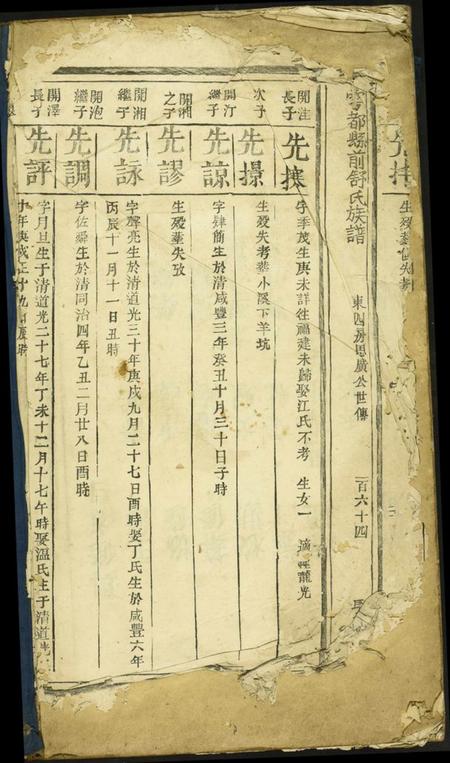 先
生歿葬俱失考
雩都縣前舒氏族譜
東四房思廣公世傳
一百六十四
開注
長子
先
字季茂生庚未詳往福建未歸娶江氏不考 生女一 適 龍光
次子
先㯳
生歿失考葬小溪下羊坑
開汀
繼子
先諒
字肆簡生於清咸豐三年癸丑十月三十日子時
開湘
之子
先謬
生歿葬失攷
開湘
繼子
先詠
字聲亮生於清道光三十年庚戌九月二十七日酉時娶丁氏生於咸豐六年
丙辰十一月十一日丑時
開泡
繼子
先調
字佐舜生於清同治四年乙丑二月廿八日酉時
開澤
長子
先評
字月旦生于清道光二十七年丁未十二月十七午時娶溫氏生于清道光
十年庚戌正十九日辰時